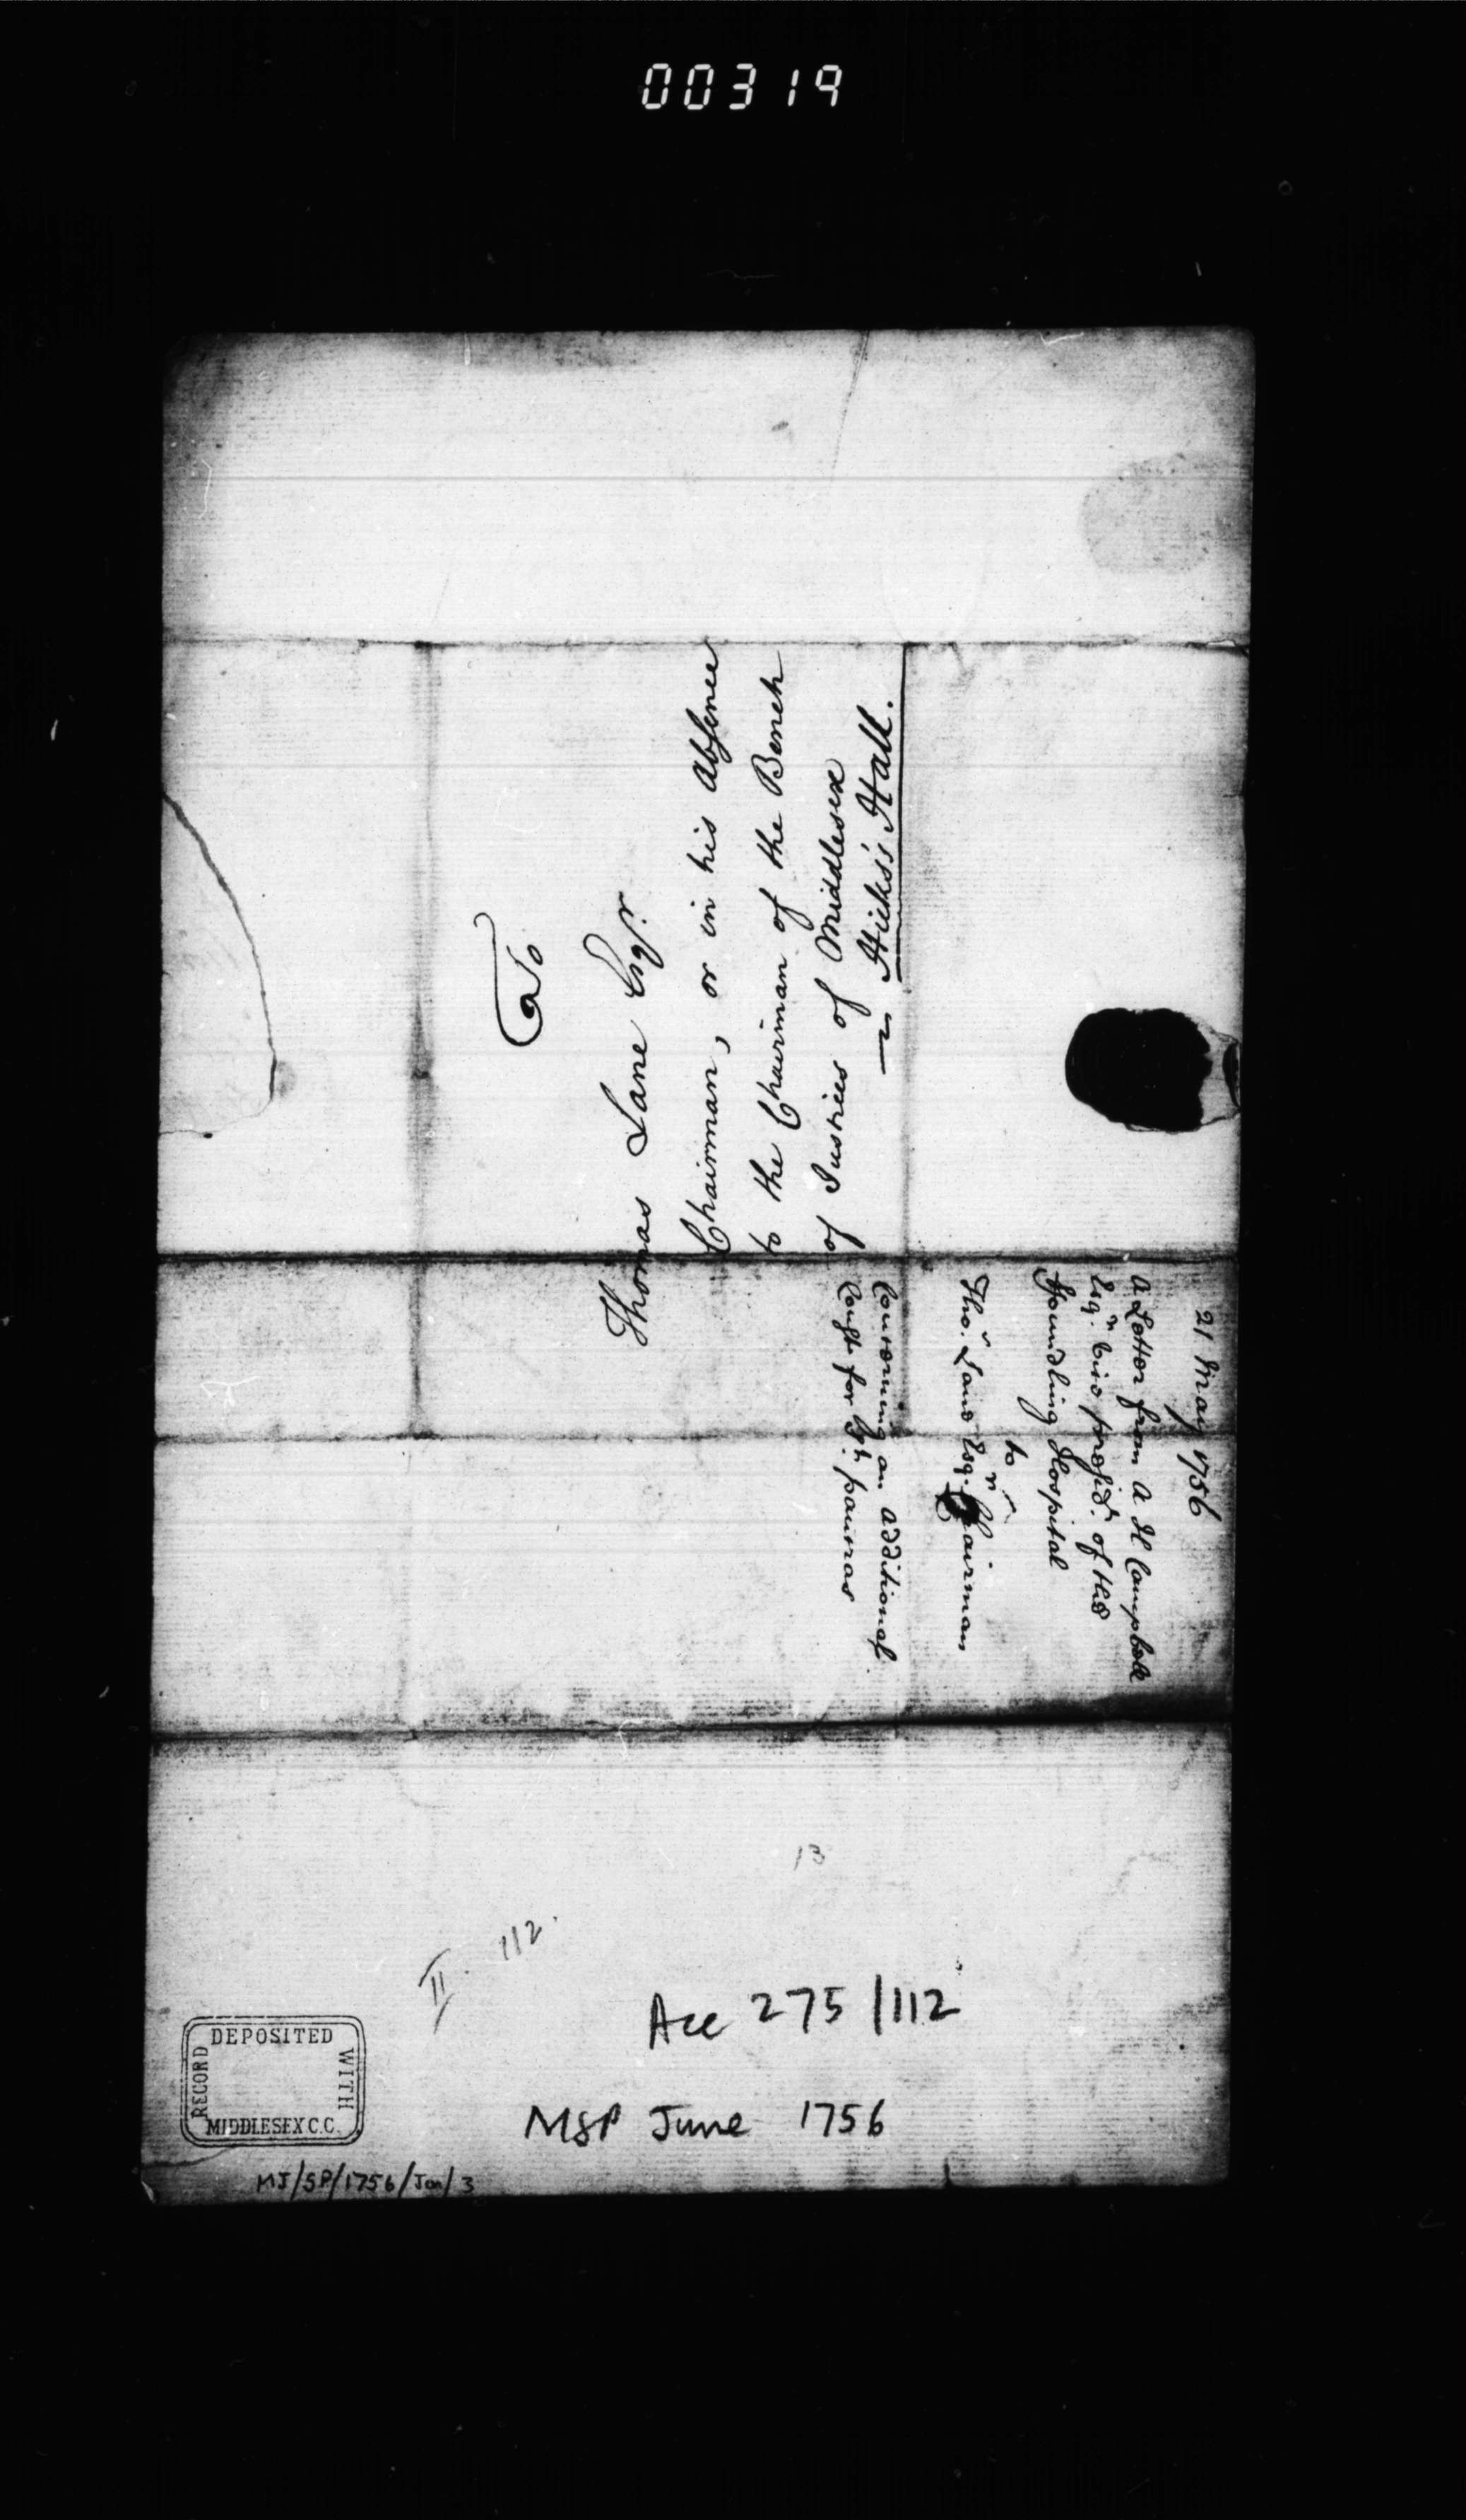 00319
To
Thomas Lane Esqr.
Chairman, or in his Absence
to the Chairman of the Bench
of Justices of Middlesex
Hicks's Hall.
21 May 1756
A Letter from A H Campbell
Esqr. Vice presidt. of the
Foundling Hospital
to
Tho.s Lane Esqr. Chairman
Concerning an additional
for pancras
13
II 112
Acc 275/112
MSP June 1756
DEPOSITED
WITH
MIDDLESEX C.C.
RECORD
MJ/SP/1756/Jun/3